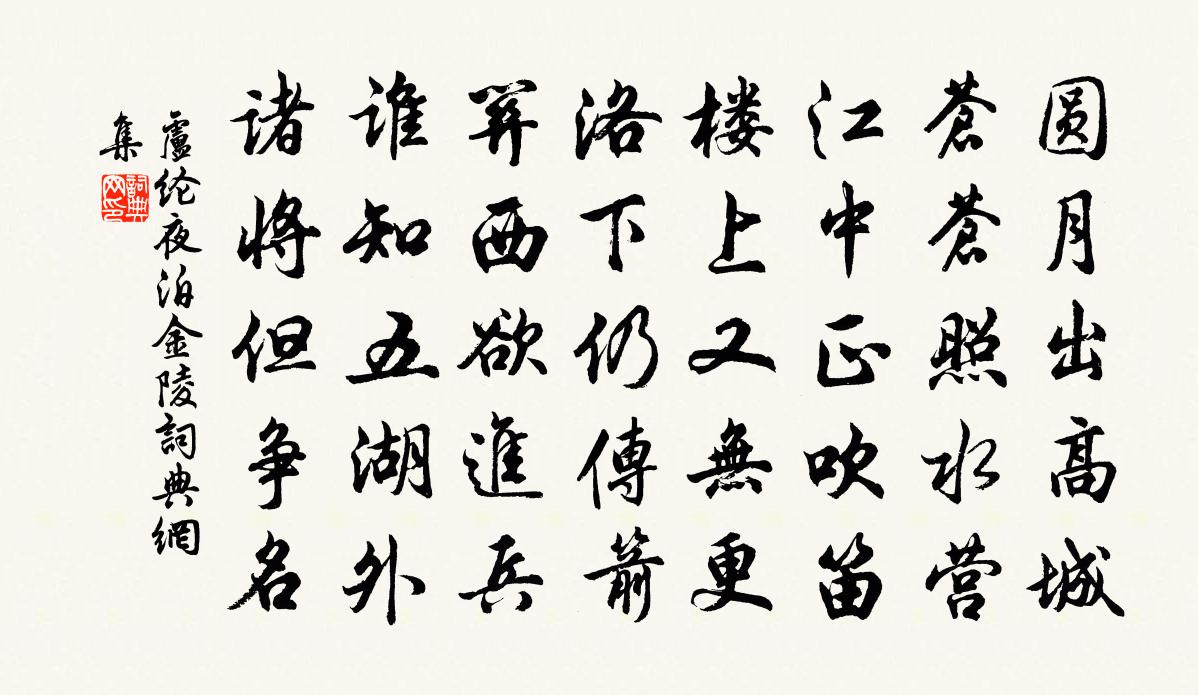 圆月出高城
蒼蒼照水营
江中正吹笛
楼上又無更
洛下仍傳箭
関西欲進兵
谁知五湖外
诸将但争名
盧纶夜泊金陵詞典網
集
詞典網印